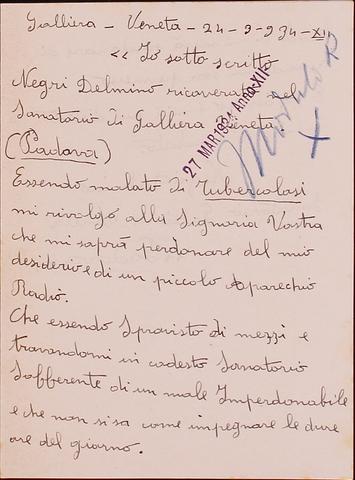 Galliera - Veneta - 24-3-934-XII
<< Io sotto scritto
Negri Delmino ricoverato nel
Sanatorio di Galliera Veneta.
(Padova)
27 MAR 1934 Anno XII
Essendo malato di Tubercolosi
mi rivolgo alla Signoria Vostra
che mi saprà perdonare del mio
desiderio e di un piccolo Apparechio
Radiò.
Che essendo Sprovisto di mezzi e
trovandomi in codesto Sanatorio
Sofferente di un male Imperdonabile
e che non si sa come impegnare le dure
ore del giorno.